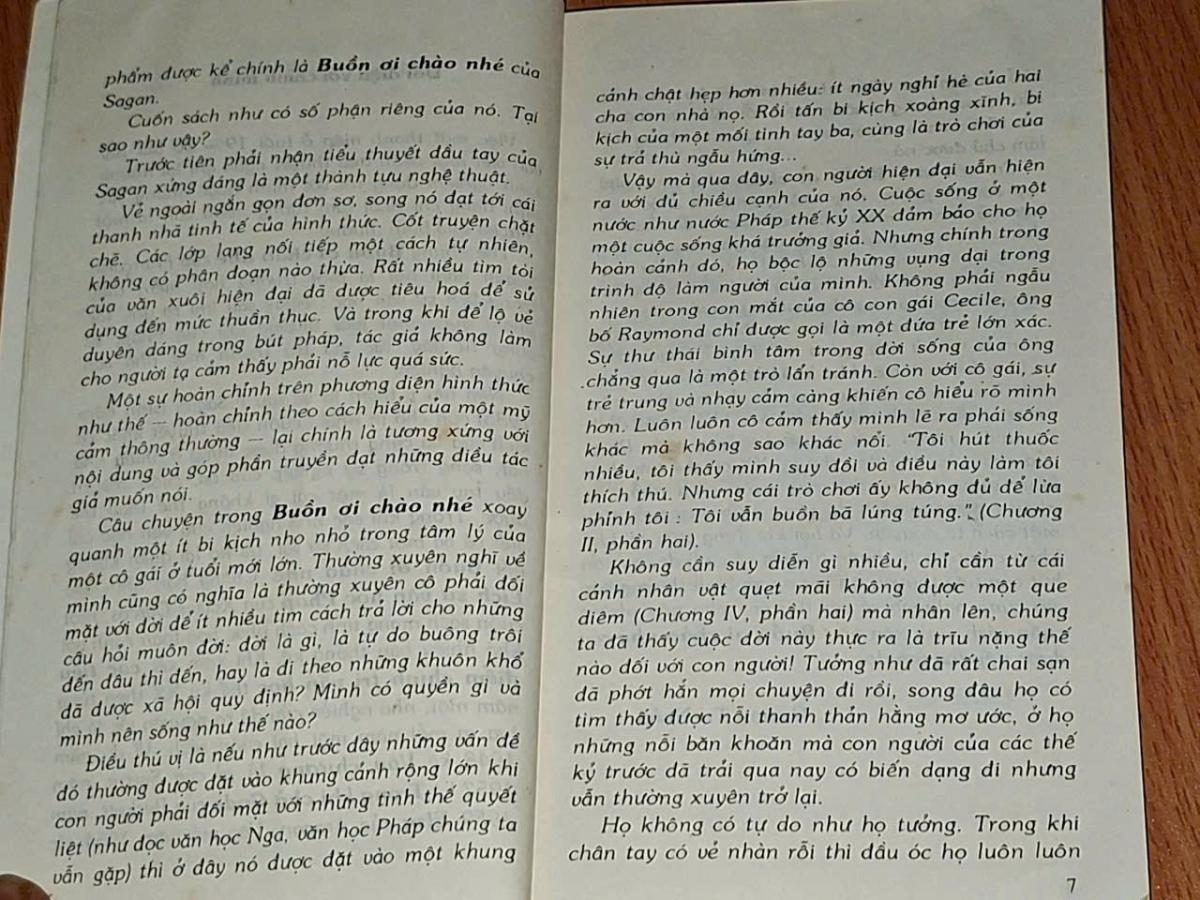 phẩm được kể chính là Buồn ơi chào nhé của
Sagan.
Cuốn sách như có số phận riêng của nó. Tại
sao như vậy?
Trước tiên phải nhận tiểu thuyết đầu tay của
Sagan xứng đáng là một thành tựu nghệ thuật.
Vẻ ngoài ngắn gọn đơn sơ, song nó đạt tới cái
thanh nhã tinh tế của hình thức. Cốt truyện chặt
chẽ. Các lớp lang nối tiếp một cách tự nhiên,
không có phân đoạn nào thừa. Rất nhiều tìm tòi
của văn xuôi hiện đại đã được tiêu hoá để sử
dụng đến mức thuần thục. Và trong khi để lộ vẻ
duyên dáng trong bút pháp, tác giả không làm
cho người tạ cảm thấy phải nỗ lực quá sức.
Một sự hoàn chỉnh trên phương diện hình thức
như thế — hoàn chỉnh theo cách hiểu của một mỹ
cảm thông thường — lại chính là tương xứng với
nội dung và góp phần truyền đạt những điều tác
giả muốn nói.
Câu chuyện trong Buồn ơi chào nhé xoay
quanh một ít bi kịch nho nhỏ trong tâm lý của
một cô gái ở tuổi mới lớn. Thường xuyên nghĩ về
mình cũng có nghĩa là thường xuyên cô phải đối
mặt với đời để ít nhiều tìm cách trả lời cho những
câu hỏi muôn đời: đời là gì, là tự do buông trôi
đến đâu thì đến, hay là đi theo những khuôn khổ
đã được xã hội quy định? Mình có quyền gì và
mình nên sống như thế nào?
Điều thú vị là nếu như trước đây những vấn đề
đó thường được đặt vào khung cảnh rộng lớn khi
con người phải đối mặt với những tình thế quyết
liệt (như đọc văn học Nga, văn học Pháp chúng ta
vẫn gặp) thì ở đây nó được đặt vào một khung
cảnh chật hẹp hơn nhiều: ít ngày nghỉ hè của hai
cha con nhà nọ. Rồi tấn bi kịch xoàng xĩnh, bi
kịch của một mối tình tay ba, cùng là trò chơi của
sự trả thù ngẫu hứng...
Vậy mà qua đây, con người hiện đại vẫn hiện
ra với đủ chiều cạnh của nó. Cuộc sống ở một
nước như nước Pháp thế kỷ XX đảm bảo cho họ
một cuộc sống khá trưởng giả. Nhưng chính trong
hoàn cảnh đó, họ bộc lộ những vụng dại trong
trình độ làm người của mình. Không phải ngẫu
nhiên trong con mắt của cô con gái Cecile, ông
bố Raymond chỉ được gọi là một đứa trẻ lớn xác.
Sự thư thái bình tâm trong đời sống của ông
chẳng qua là một trò lẩn tránh. Còn với cô gái, sự
trẻ trung và nhạy cảm càng khiến cô hiểu rõ mình
hơn. Luôn luôn cô cảm thấy mình lẽ ra phải sống
khác mà không sao khác nổi. "Tôi hút thuốc
nhiều, tôi thấy mình suy đồi và điều này làm tôi
thích thú. Nhưng cái trò chơi ấy không đủ để lừa
phỉnh tôi : Tôi vẫn buồn bã lúng túng." (Chương
II, phần hai).
Không cần suy diễn gì nhiều, chỉ cần từ cái
cảnh nhân vật quẹt mãi không được một que
diêm (Chương IV, phần hai) mà nhân lên, chúng
ta đã thấy cuộc đời này thực ra là trĩu nặng thế
nào đối với con người! Tưởng như đã rất chai sạn
đã phớt hẳn mọi chuyện đi rồi, song đâu họ có
tìm thấy được nỗi thanh thản hằng mơ ước, ở họ
những nỗi băn khoăn mà con người của các thế
kỷ trước đã trải qua nay có biến dạng đi nhưng
vẫn thường xuyên trở lại.
Họ không có tự do như họ tưởng. Trong khi
chân tay có vẻ nhàn rỗi thì đầu óc họ luôn luôn
7